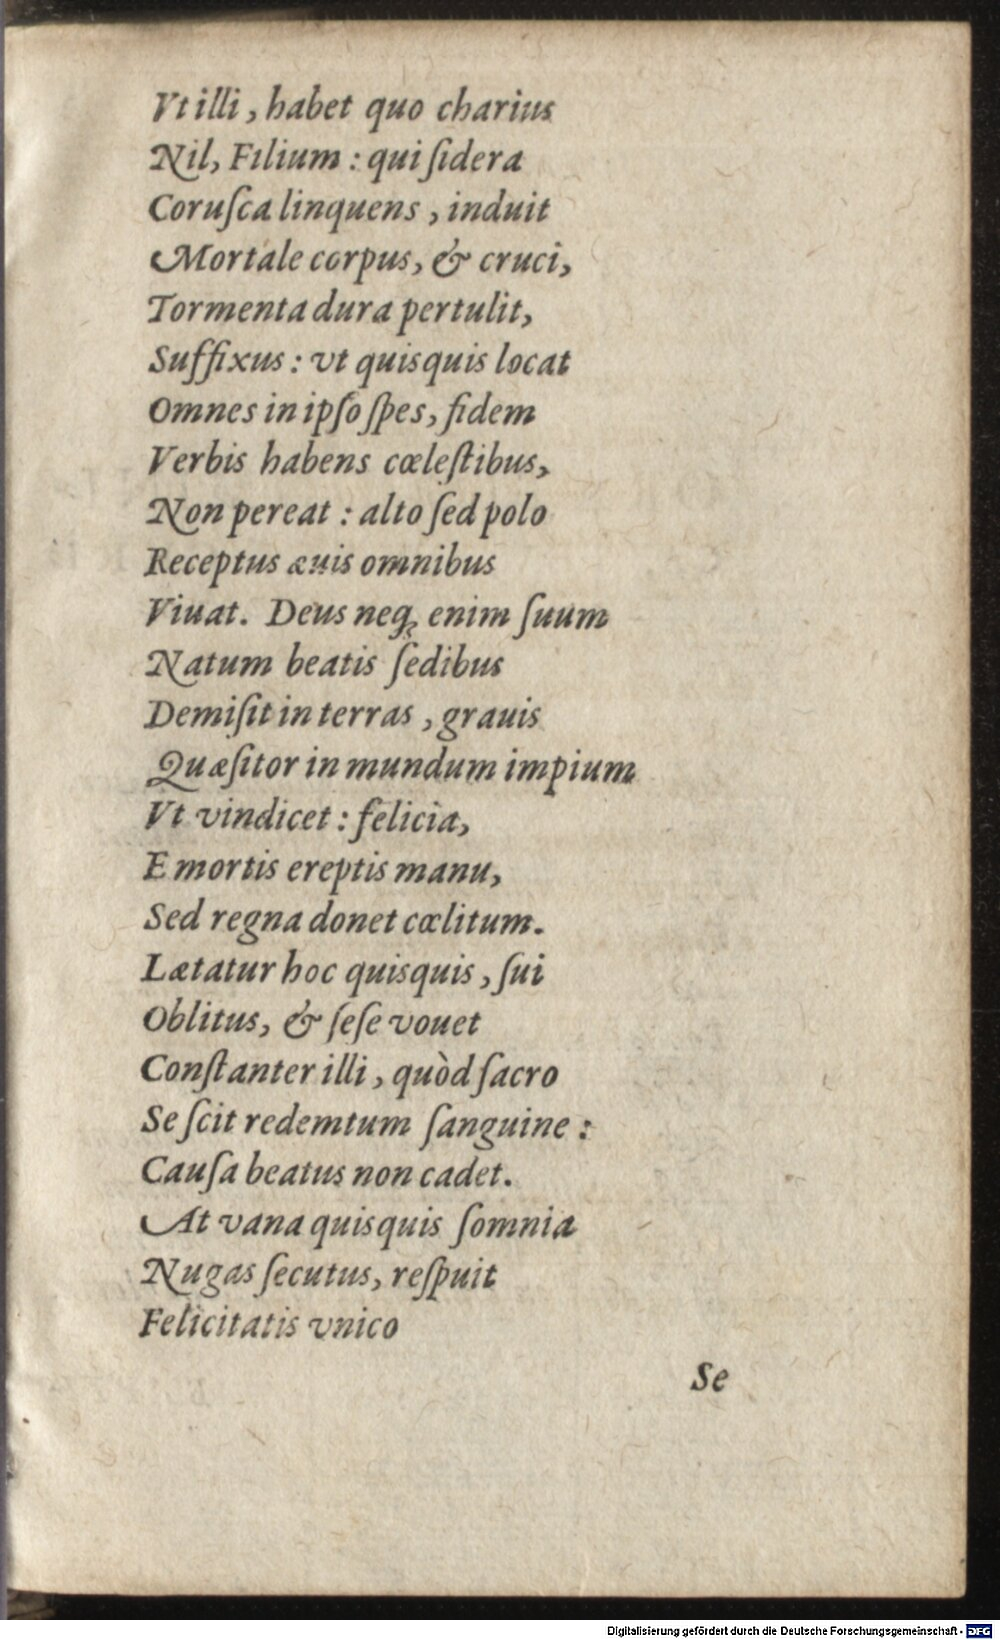 Vt illi, habet quo charius
Nil, Filium: qui ſidera
Coruſca linquens, induit
Mortale corpus, & cruci,
Tormenta dura pertulit,
Suffixus: vt quisquis locat
Omnes in ipſo ſpes, fidem
Verbis habens cœleſtibus,
Non pereat: alto ſed polo
Receptus æuis omnibus
Viuat. Deus neq; enim ſuum
Natum beatis ſedibus
Demiſit in terras, grauis
Quæſitor in mundum impium
Vt vindicet: felicia,
E mortis ereptis manu,
Sed regna donet cœlitum.
Lætatur hoc quisquis, ſui
Oblitus, & ſeſe vouet
Conſtanter illi, quòd ſacro
Se ſcit redemtum ſanguine:
Cauſa beatus non cadet.
At vana quisquis ſomnia
Nugas ſecutus, reſpuit
Felicitatis vnico
Se
Digitalisierung gefördert durch die Deutsche Forschungsgemeinschaft - DFG